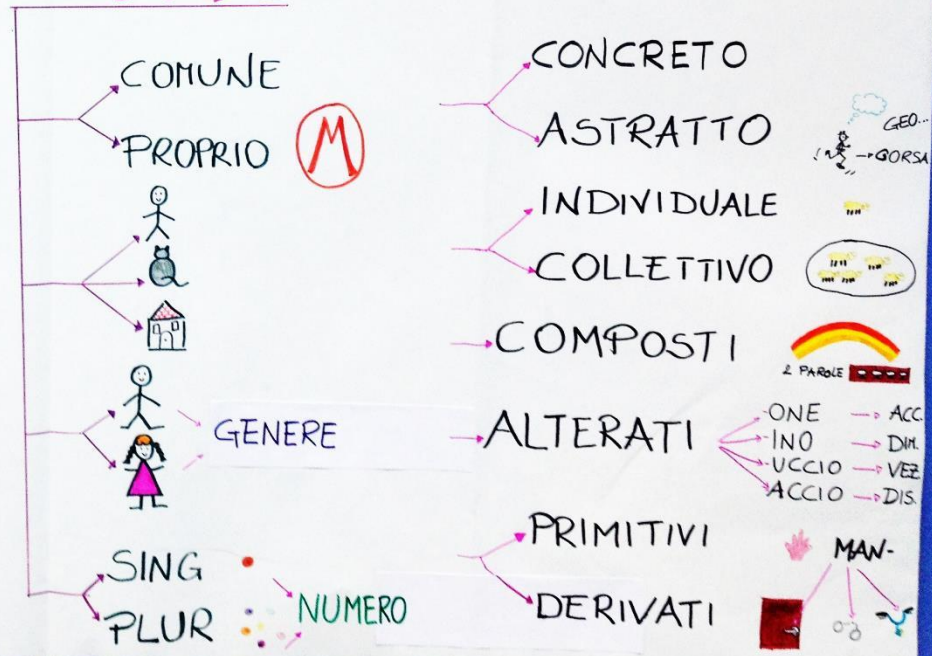 COMUNE
PROPRIO
M
GENERE
SING
PLUR
NUMERO
CONCRETO
ASTRATTO
GEO...
CORSA
INDIVIDUALE
COLLETTIVO
COMPOSTI
2 PAROLE
ALTERATI
-ONE → ACC.
-INO → DIM.
-UCCIO → VEZ.
-ACCIO → DIS.
PRIMITIVI
MAN-
DERIVATI